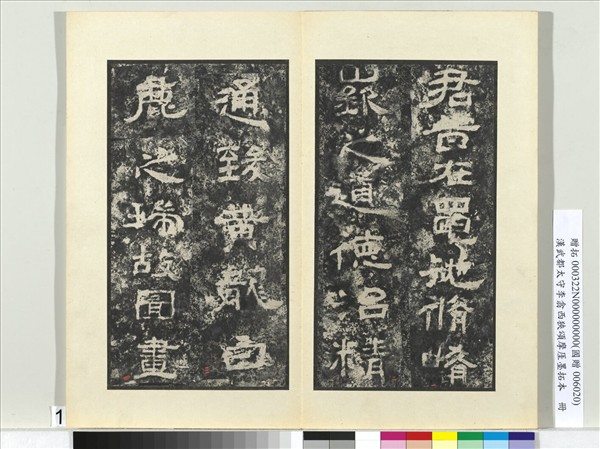 君昔在黽池脩崤
嶔之道德治精
通致黃龍白
鹿之瑞故圖畫
贈拓 000322N000000000(國贈 006020)
漢武都太守李翕西狹頌摩厓墨拓本 冊
1